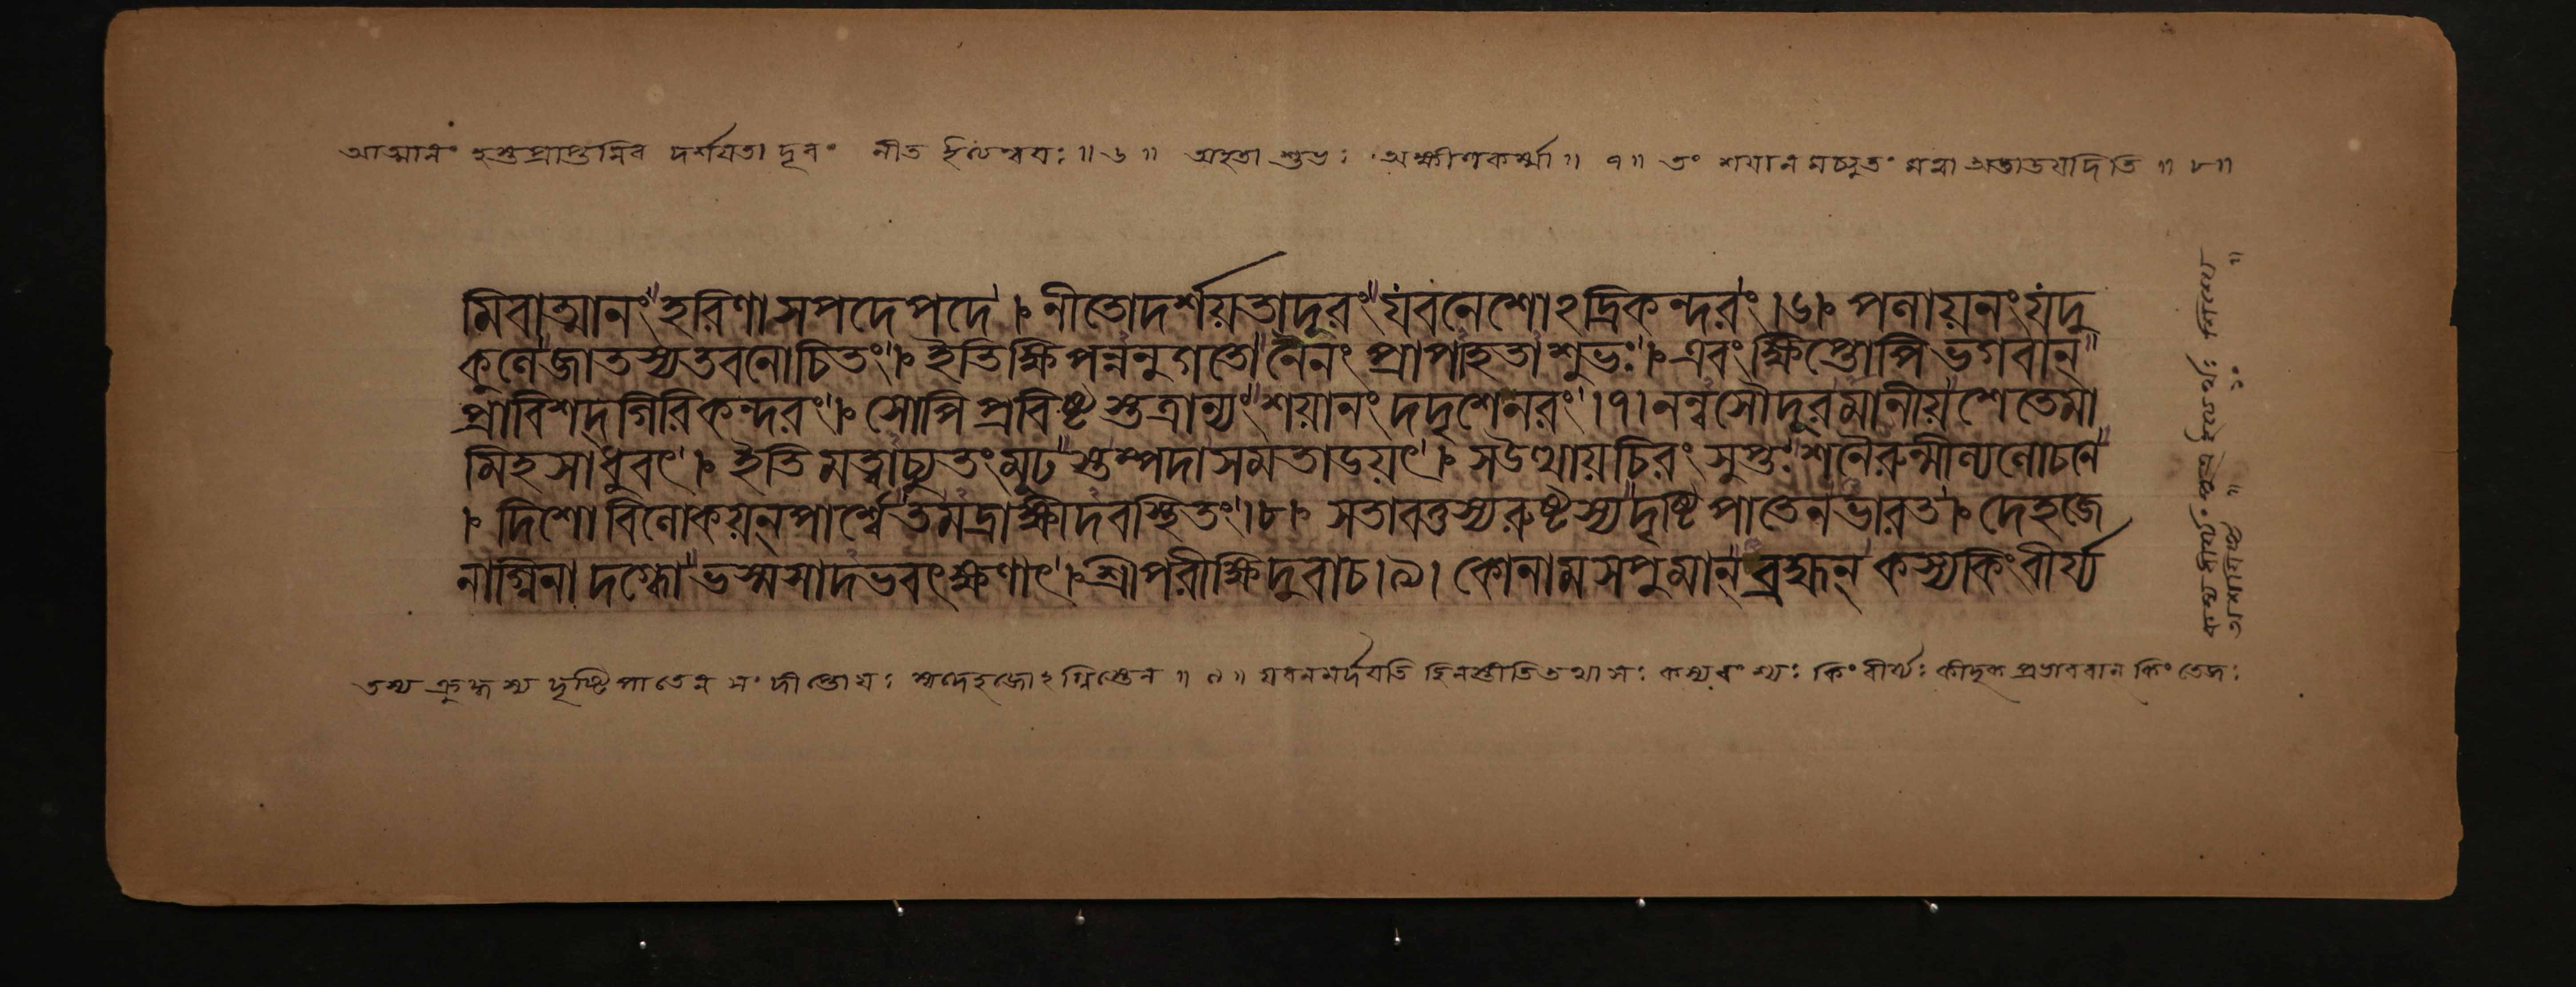 আত্মানং হস্তপ্রাপ্তমিব দর্শযতা দূরং নীত ইত্যন্বযঃ ॥ ৬ ॥ অহতাশুভঃ অক্ষীণকর্ম্মা ॥ ৭ ॥ তং শযানমচ্যুতং মত্বা অতাডযদিতি ॥ ৮ ॥
মিবাত্মানং হরিণাসপদেপদে । নীতোদর্শয়তাদূরং যবনেশোঽদ্রিকন্দরং ।৬। পলায়নংযদু
কুলেজাতস্যতবনোচিতং । ইতিক্ষিপন্ননুগতো নৈনং প্রাপাহতাশুভঃ । এবং ক্ষিপ্তোপি ভগবান্
প্রাবিশদ্গিরিকন্দরং । সোপি প্রবিষ্টস্তত্রান্যং শয়ানং দদৃশেনরং ।৭। নন্বসৌদূরমানীয় শেতেমা
মিহসাধুবৎ । ইতি মত্বাচ্যুতং মূঢস্তম্পদাসমতাডয়ৎ । সউত্থায়চিরং সুপ্তঃ শনৈরুন্মীল্যলোচনে
। দিশো বিলোকয়ন্পার্শ্বেতমদ্রাক্ষীদবস্থিতং ।৮। সতাবত্তস্যরুষ্টস্যদৃষ্টিপাতেনভারত । দেহজে
নাগ্নিনাদগ্ধো ভস্মসাদভবৎক্ষণাৎ । শ্রীপরীক্ষিদুবাচ ।৯। কোনামসপুমান্ ব্রহ্মন্ কস্যকিংবীর্য্য
তস্য ক্রুদ্ধস্য দৃষ্টিপাতেন সংদীপ্তোযঃ স্বদেহজোঽগ্নিস্তেন ॥ ৯ ॥ যবনমর্দযতি হিনস্তীতি তথা সঃ কস্য বংশ্যঃ কিংবীর্য্যঃ কীদৃক্প্রভাববান কিংতেজঃ
কস্য বীর্য্যং পুত্র ইত্যর্থঃ শিশ্যে ॥
১০ ॥